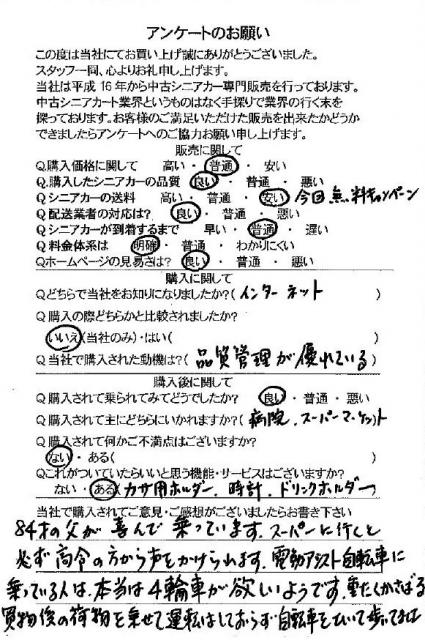 アンケートのお願い
この度は当社にてお買い上げ誠にありがとうございました。
スタッフ一同、心よりお礼申し上げます。
当社は平成 16年から中古シニアカー専門販売を行っております。
中古シニアカート業界というものはなく手探りで業界の行く末を
探っております。お客様のご満足いただけた販売を出来たかどうか
できましたらアンケートへのご協力お願い申し上げます。
販売に関して
Q.購入価格に関して 高い・普通・安い
Q.購入したシニアカーの品質 良い・普通・悪い
Q シニアカーの送料 高い・普通・安い 今回無料キャンペーン
Q 配送業者の対応は? 良い・普通・悪い
Q.シニアカーが到着するまで 早い・普通・遅い
Q 料金体系は 明確・普通・わかりにくい
Q.ホームページの見易さは? 良い・普通・悪い
購入に関して
Q どちらで当社をお知りになりましたか?( インターネット )
Q 購入の際どちらかと比較されましたか?
いいえ(当社のみ)・はい( )
Q 当社で購入された動機は?( 品質管理が優れている )
購入後に関して
Q 購入されて乗られてみてどうでしたか? 良い・普通・悪い
Q 購入されて主にどちらにいかれますか?( 病院、スーパーマーケット )
Q 購入されて何かご不満点はございますか?
ない・ある( )
Q これがついていたらいいと思う機能・サービスはございますか?
ない・ある( カサ用ホルダー、時計、ドリンクホルダー )
当社で購入されてご意見・ご感想がございましたらお書き下さい
84才の父が喜んで乗っています。スーパーに行くと
必ず高令の方から声をかけられます。電動アシスト自転車に
乗っている人は、本当は4輪車が欲いようです。重たくかさばる
買物後の荷物を乗せて運転はしておらず自転車をひいて歩いて